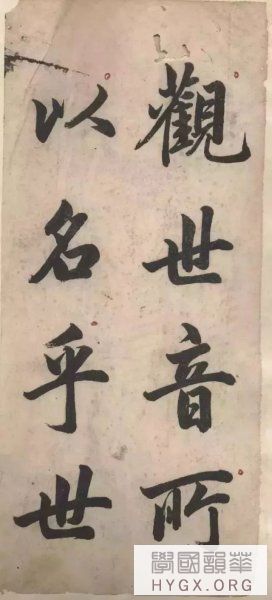 觀世音所
以名乎世
華韻國學
HYGX.ORG